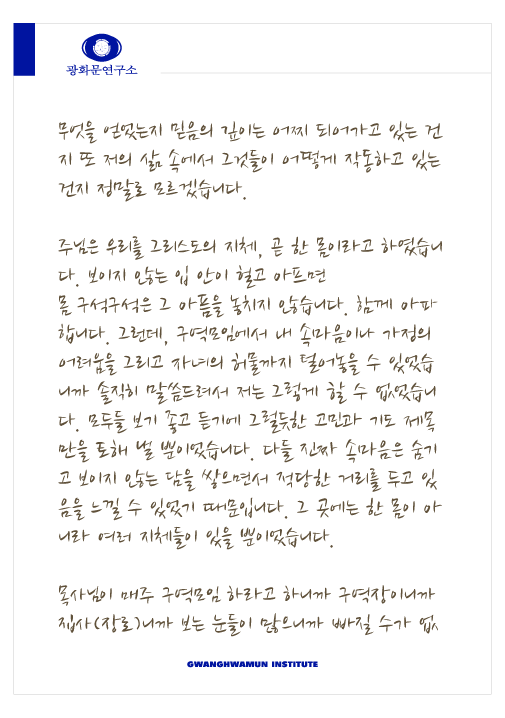 광화문연구소
무엇을 얻었는지 믿음의 깊이는 어찌 되어가고 있는 건
지 또 저의 삶 속에서 그것들이 어떻게 작동하고 있는
건지 정말로 모르겠습니다.
주님은 우리를 그리스도의 지체, 곧 한 몸이라고 하였습니
다. 보이지 않는 입 안이 헐고 아프면
몸 구석구석은 그 아픔을 놓치지 않습니다. 함께 아파
합니다. 그런데, 구역모임에서 내 속마음이나 가정의
어려움을 그리고 자녀의 허물까지 털어놓을 수 있었습
니까 솔직히 말씀드려서 저는 그렇게 할 수 없었습니
다. 모두들 보기 좋고 듣기에 그럴듯한 고민과 기도 제목
만을 토해 낼 뿐이었습니다. 다들 진짜 속마음은 숨기
고 보이지 않는 담을 쌓으면서 적당한 거리를 두고 있
음을 느낄 수 있었기 때문입니다. 그 곳에는 한 몸이 아
니라 여러 지체들이 있을 뿐이었습니다.
목사님이 매주 구역모임 하라고 하니까 구역장이니까
집사(장로)니까 보는 눈들이 많으니까 빠질 수가 없
GWANGHWAMUN INSTITUTE